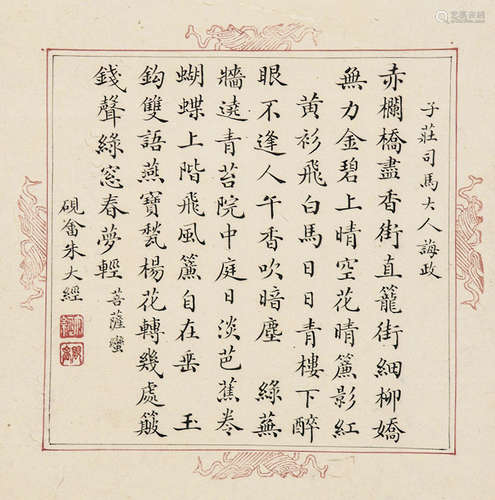 子莊司馬大人誨政
赤欄橋盡香街直籠街細柳嬌
無力金碧上晴空花晴簾影紅
黃衫飛白馬日日青樓下醉
眼不逢人午香吹暗塵 綠蕪
牆遶青苔院中庭日淡芭蕉卷
蝴蝶上階飛風簾自在垂 玉
鈎雙語燕寶甃楊花轉幾處簸
錢聲綠窓春夢輕 菩薩蠻
硯畬朱大經